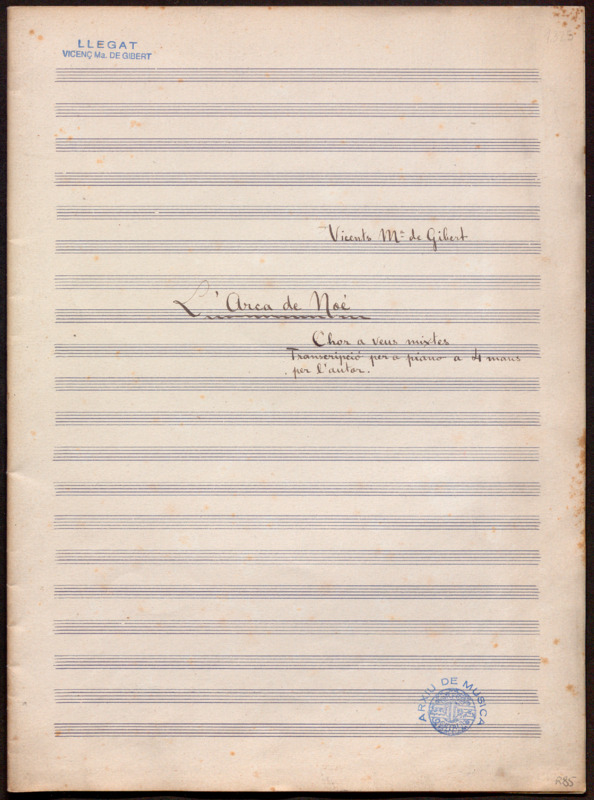 LLEGAT
VICENÇ Ma. DE GIBERT
Vicents Mª de Gibert
L'Arca de Noé
Chor a veus mixtes
Transcripció per a piano a 4 mans
per l'autor.
ARXIU DE MUSICA
285